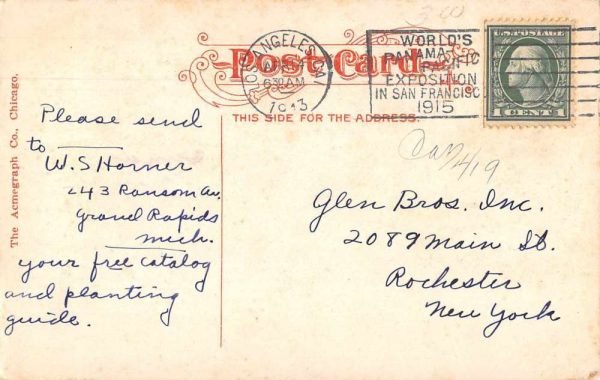 Post Card
THIS SIDE FOR THE ADDRESS.
LOS ANGELES, CAL.
630 AM
1913
WORLD'S
PANAMA
PACIFIC
EXPOSITION
IN SAN FRANCISCO
1915
U.S. POSTAGE
1 CENT 1
The Acmegraph Co., Chicago.
Please send
to
W.S Horner
243 Ransom Av.
Grand Rapids
Mich.
your free catalog
and planting
guide.
4/19
Glen Bros. Inc.
2089 Main St.
Rochester
New York